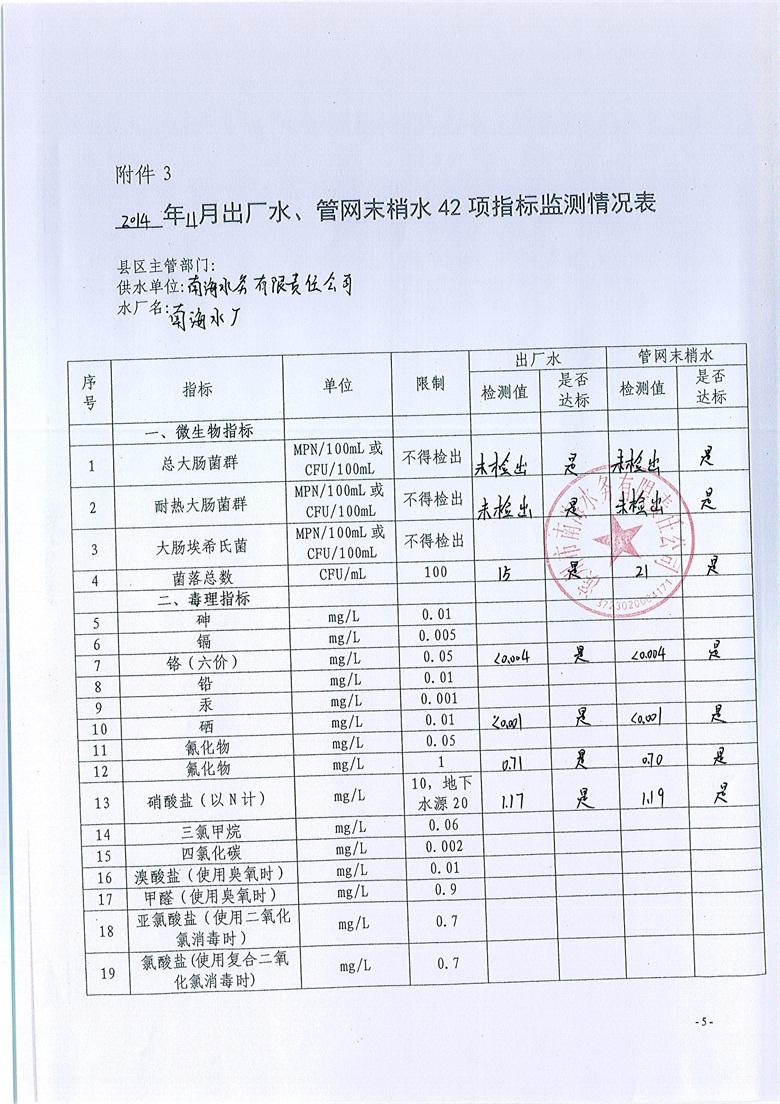 附件 3
2014 年11月出厂水、管网末梢水 42 项指标监测情况表
县区主管部门:
供水单位:南海水务有限责任公司
水厂名:南海水厂
序号 指标 单位 限制 出厂水 管网末梢水
检测值 是否达标 检测值 是否达标
一、微生物指标
1 总大肠菌群 MPN/100mL 或 CFU/100mL 不得检出 未检出 是 未检出 是
2 耐热大肠菌群 MPN/100mL 或 CFU/100mL 不得检出 未检出 是 未检出 是
3 大肠埃希氏菌 MPN/100mL 或 CFU/100mL 不得检出
4 菌落总数 CFU/mL 100 15 是 21 是
二、毒理指标
5 砷 mg/L 0.01
6 镉 mg/L 0.005
7 铬（六价） mg/L 0.05 <0.004 是 <0.004 是
8 铅 mg/L 0.01
9 汞 mg/L 0.001
10 硒 mg/L 0.01 <0.001 是 <0.001 是
11 氰化物 mg/L 0.05
12 氟化物 mg/L 1 0.71 是 0.70 是
13 硝酸盐（以 N 计） mg/L 10，地下水源 20 1.17 是 1.19 是
14 三氯甲烷 mg/L 0.06
15 四氯化碳 mg/L 0.002
16 溴酸盐（使用臭氧时） mg/L 0.01
17 甲醛（使用臭氧时） mg/L 0.9
18 亚氯酸盐（使用二氧化氯消毒时） mg/L 0.7
19 氯酸盐(使用复合二氧化氯消毒时) mg/L 0.7
市南海水务有限责任公司
3723020004171
-5-